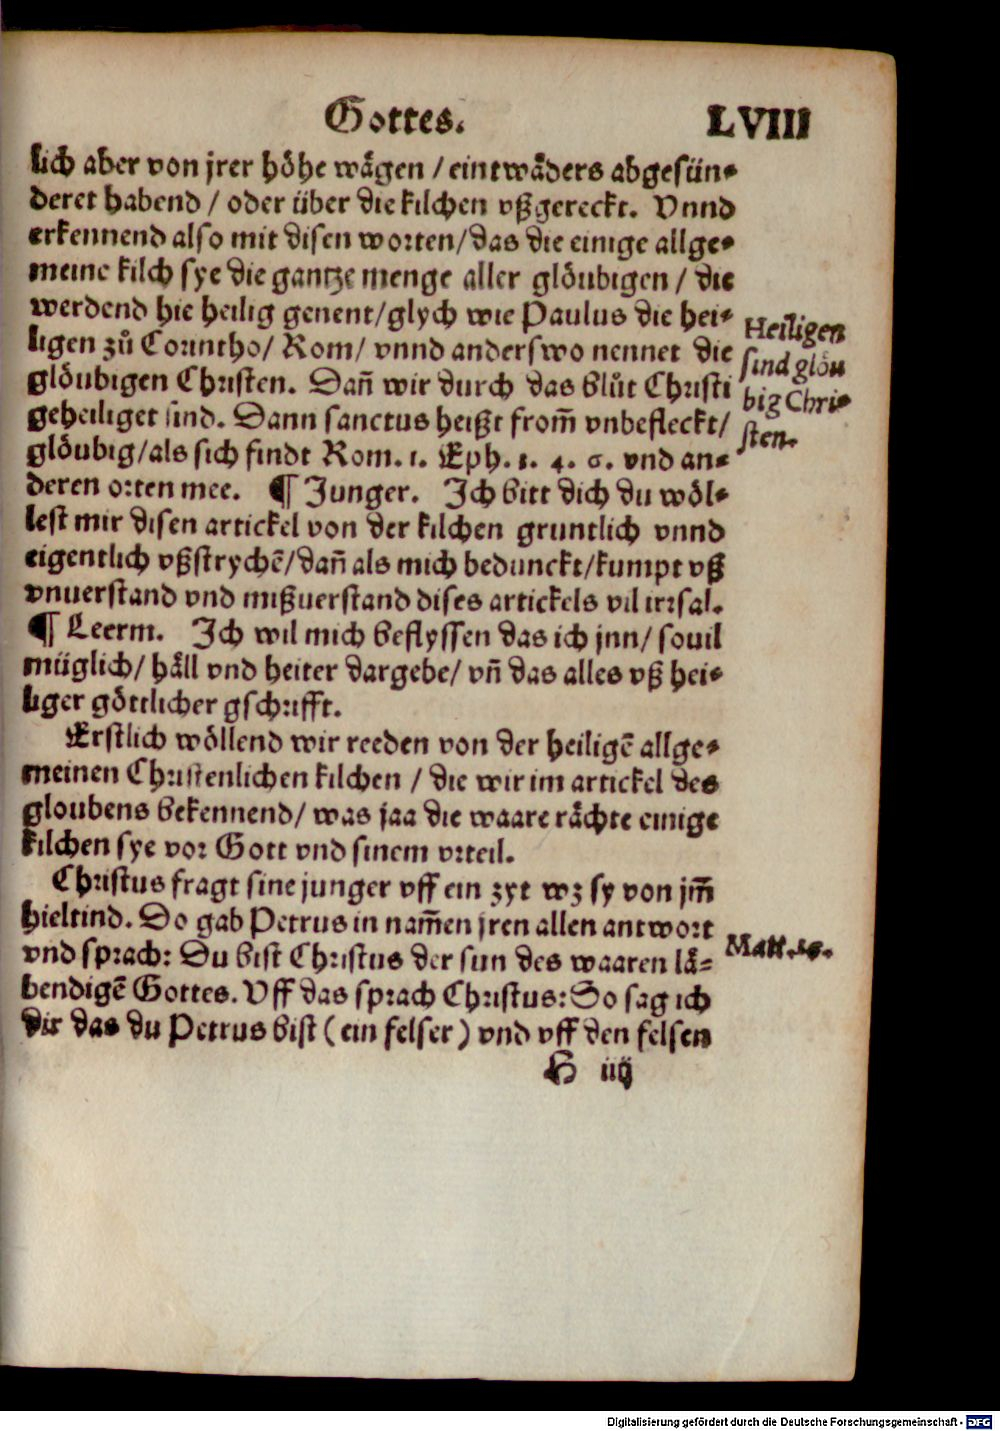 Gottes. LVIII
lich aber von jrer höhe wågen / eintwåders abgesün-
deret habend / oder über die kilchen vßgereckt. Vnnd
erkennend also mit disen worten/das die einige allge-
meine kilch sye die gantze menge aller glöubigen / die
werdend hie heilig genent/glych wie Paulus die hei-
ligen zů Corintho/ Rom/ vnnd anderswo nennet die
glöubigen Christen. Dañ wir durch das blůt Christi
geheiliget sind. Dann sanctus heißt from̃ vnbefleckt/
glöubig/als sich findt Rom. 1. Eph. 1. 4. 6. vnd an-
deren orten mee. ¶ Junger. Ich bitt dich du wöl-
lest mir disen artickel von der kilchen gruntlich vnnd
eigentlich vßstrychẽ/dañ als mich beduncket/kumpt vß
vnuerstand vnd mißuerstand dises artickels vil irrsal.
¶ Leerm. Ich wil mich beflyssen das ich jnn/ souil
müglich/ håll vnd heiter dargebe/ vñ das alles vß hei-
liger göttlicher gschrifft.
Erstlich wöllend wir reeden von der heiligẽ allge-
meinen Christenlichen kilchen / die wir im artickel des
gloubens bekennend/ was jaa die waare råchte einige
kilchen sye vor Gott vnd sinem vrteil.
Christus fragt sine junger vff ein zyt wz sy von jm̃
hieltind. Do gab Petrus in nam̃en jren allen antwort
vnd sprach: Du bist Christus der sun des waaren lå-
bendigẽ Gottes. Vff das sprach Christus: So sag ich
dir das du Petrus bist ( ein felser ) vnd vff den felsen
H iiij
Heiligen
sind glöu
big Chri-
sten.
Matt.16.
Digitalisierung gefördert durch die Deutsche Forschungsgemeinschaft - DFG